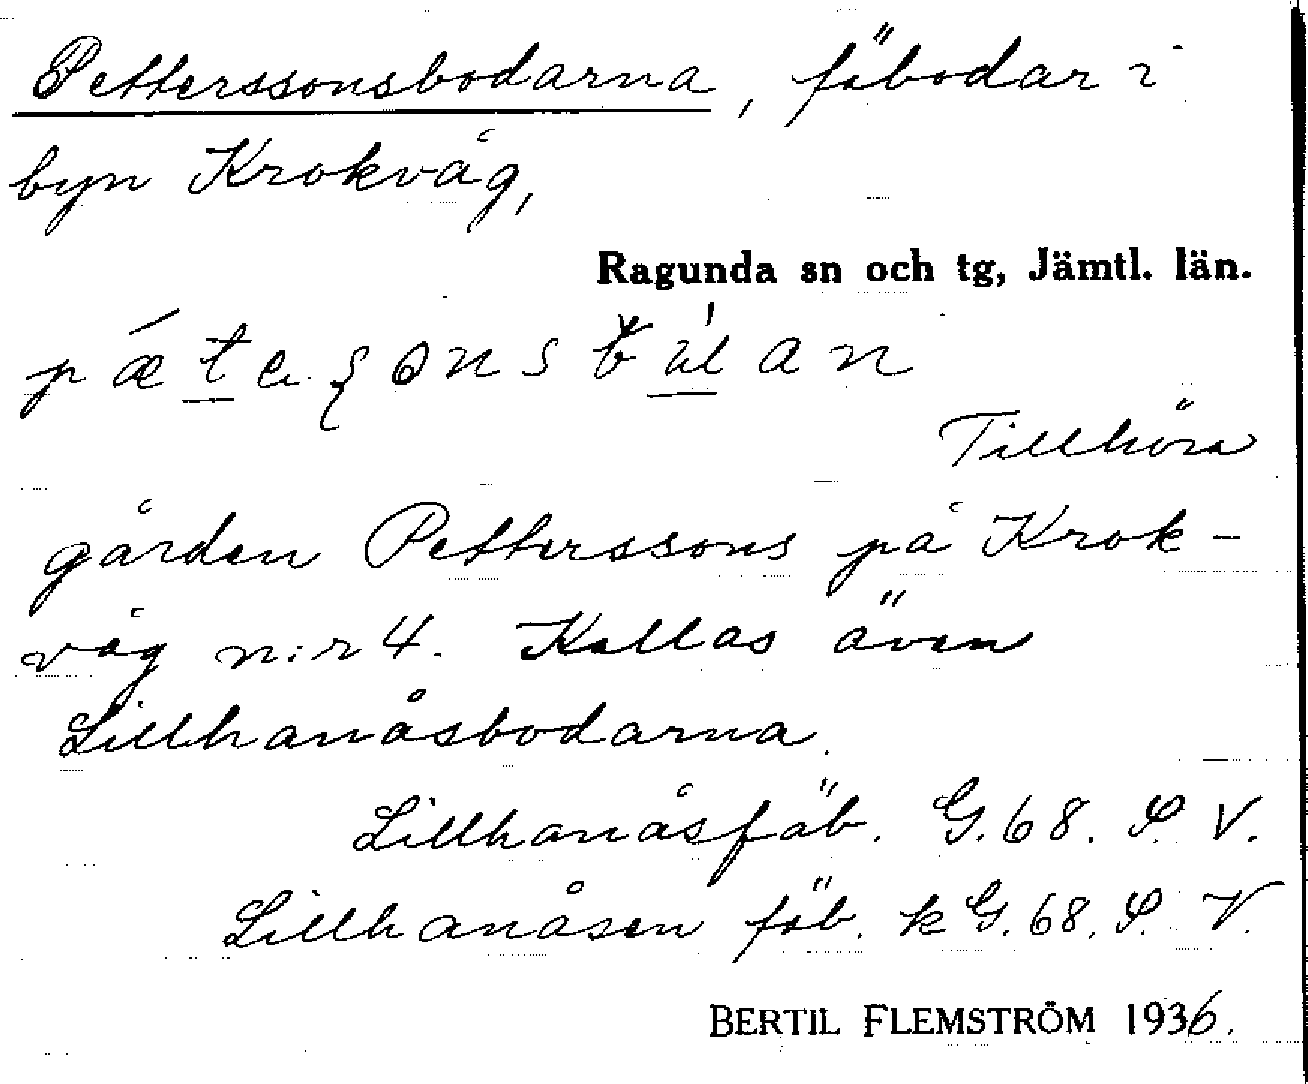 Petterssonsbodarna, fäbodar i
byn Krokvåg,
Ragunda sn och tg, Jämtl. län.
Tillhöra
gården Petterssons på Krok-
våg n:r 4. Kallas även
Lillhanåsbodarna.
Lillhanåsfäb. G. 68. S. V.
Lillhanåsen fäb. k G. 68. S. V.
BERTIL FLEMSTRÖM 1936.